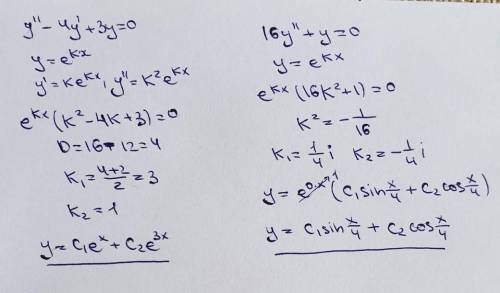 y'' - 4y' + 3y = 0
y = e^{kx}
y' = ke^{kx}, y'' = k²e^{kx}
e^{kx}(k² - 4k + 3) = 0
D = 16 - 12 = 4
k₁ = \frac{4+2}{2} = 3
k₂ = 1
y = c₁e^x + c₂e^{3x}
16y'' + y = 0
y = e^{kx}
e^{kx}(16k² + 1) = 0
k² = -\frac{1}{16}
k₁ = \frac{1}{4}i k₂ = -\frac{1}{4}i
y = e^{0·x}¹(c₁sin\frac{x}{4} + c₂cos\frac{x}{4})
y = c₁sin\frac{x}{4} + c₂cos\frac{x}{4}